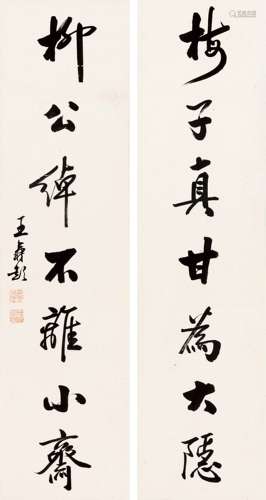 梅子真甘為大隱
柳公绰不離小齋
王壽彭